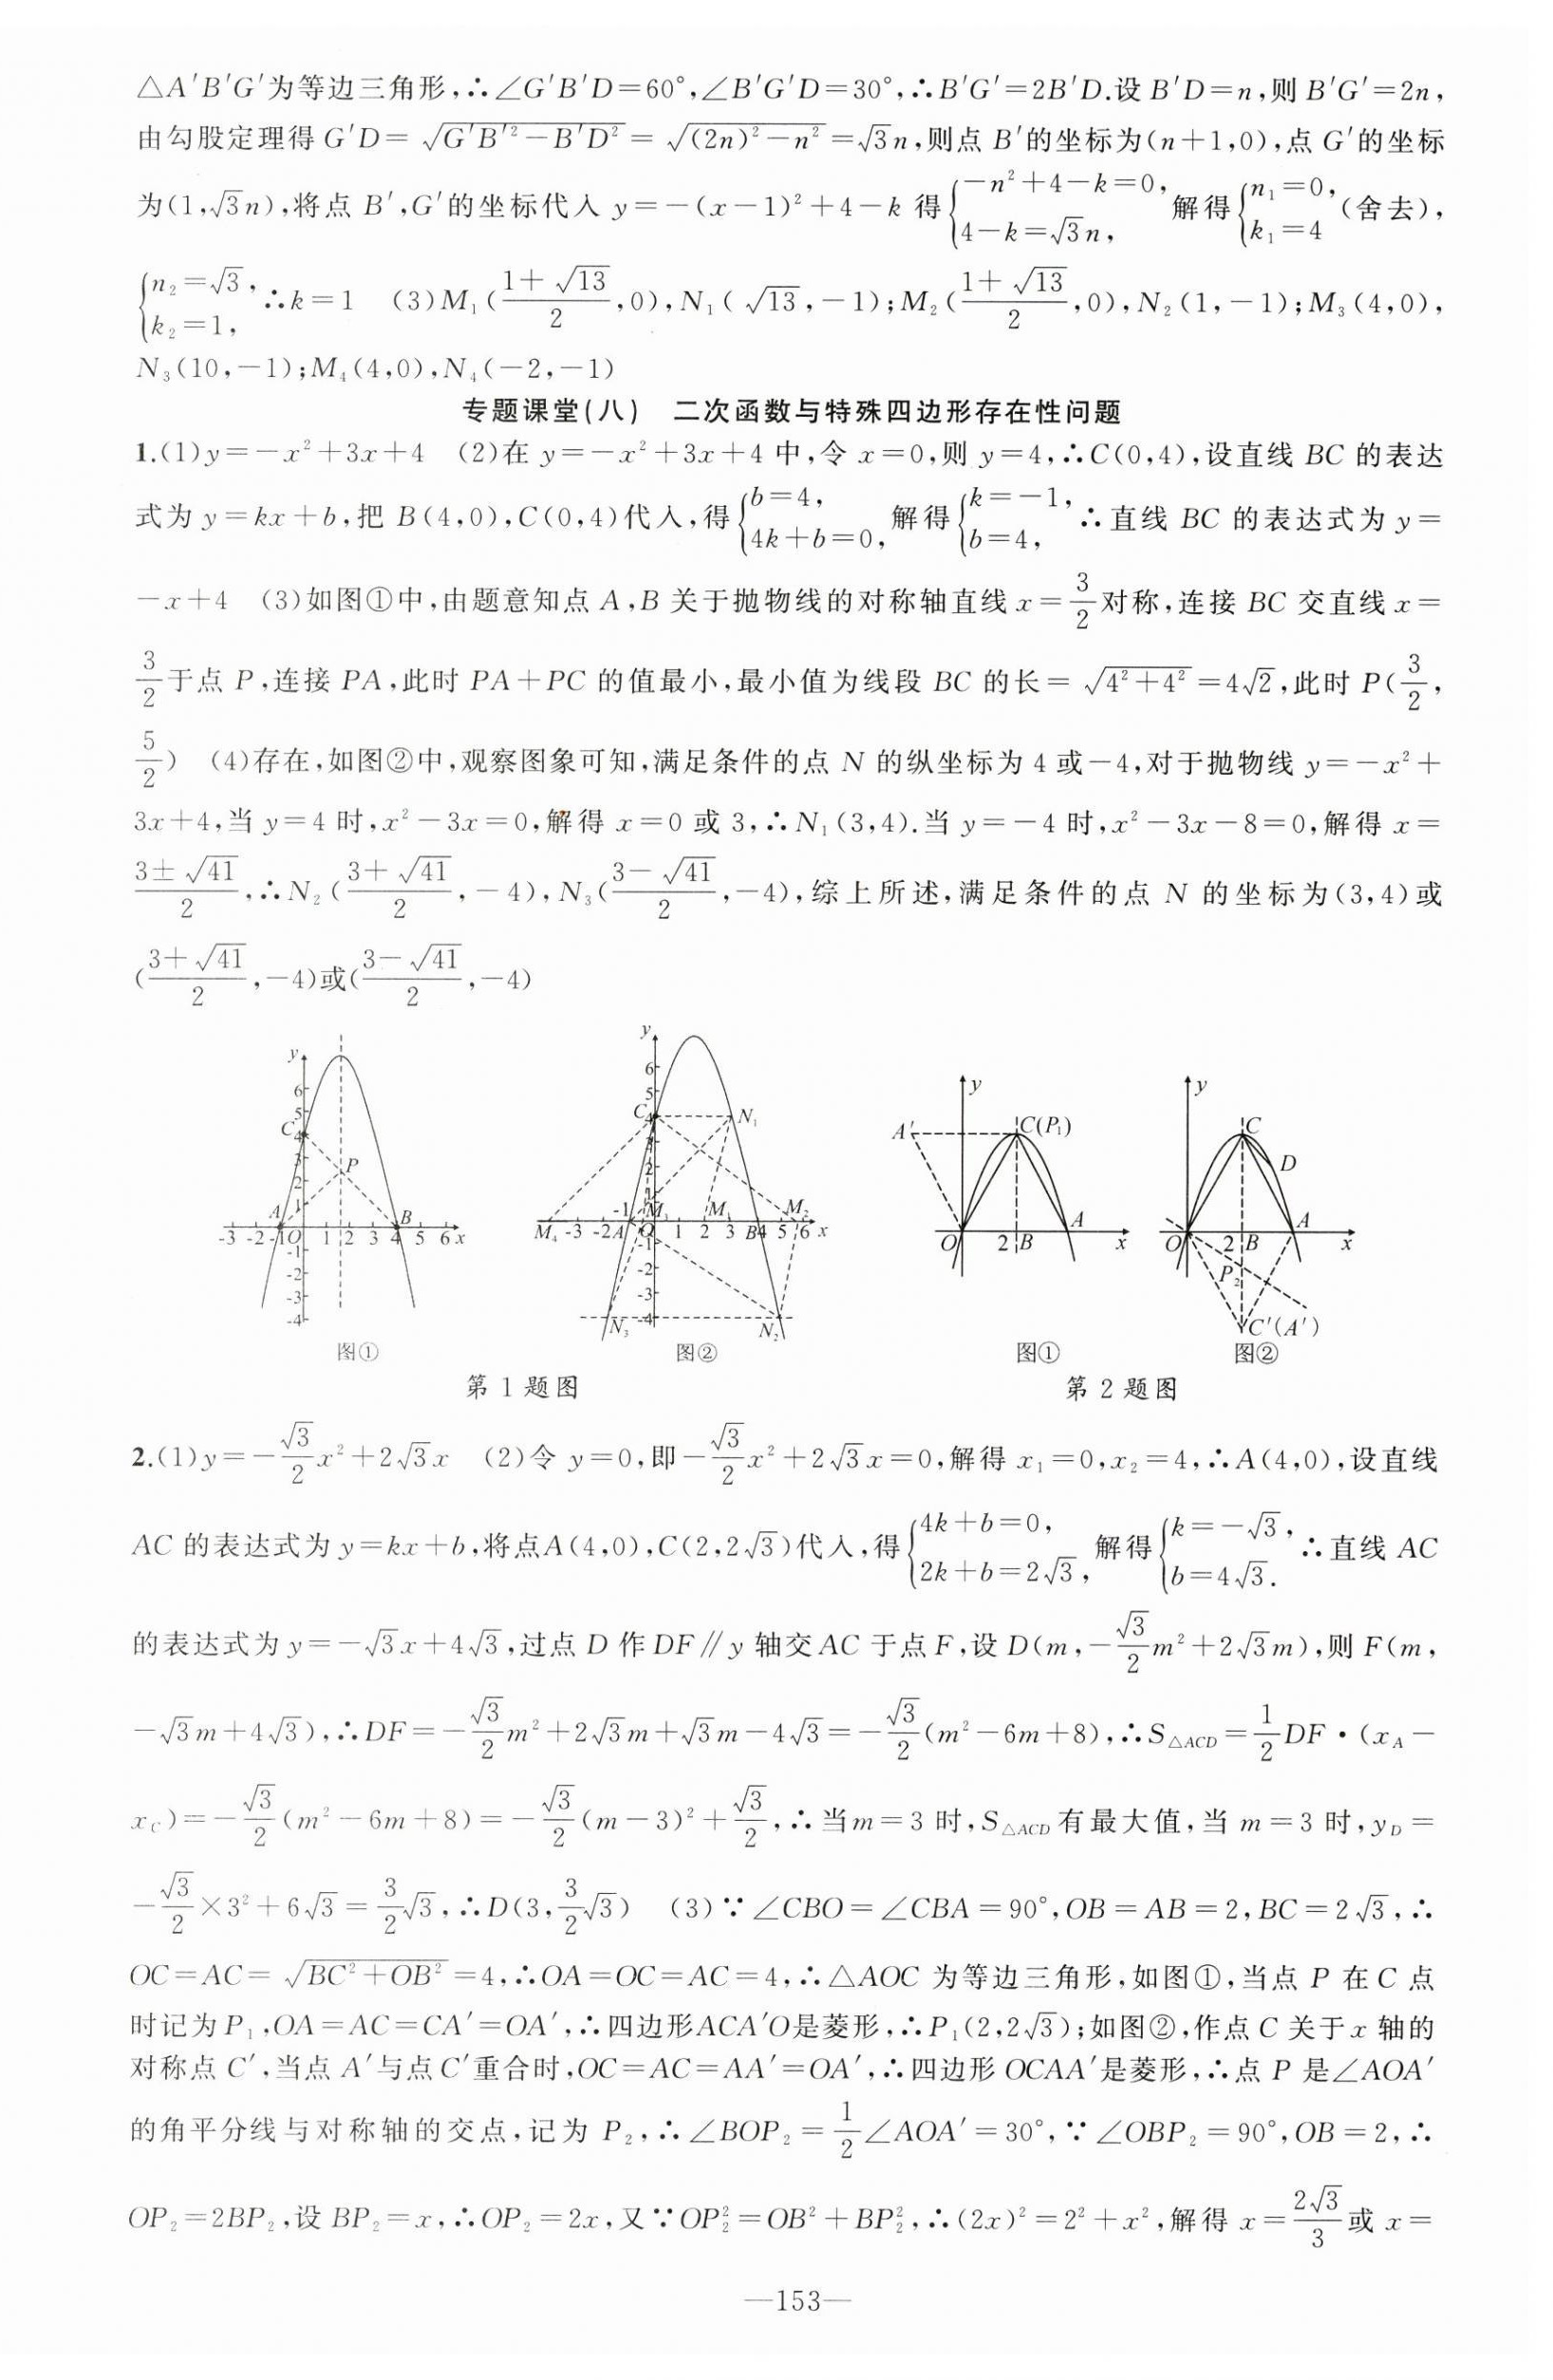 △A′B′G′为等边三角形,∴∠G′B′D=60°,∠B′G′D=30°,∴B′G′=2B′D.设B′D=n,则B′G′=2n,
由勾股定理得G′D=√(G′B′²-B′D²)=√((2n)²-n²)=√3n,则点B′的坐标为(n+1,0),点G′的坐标
为(1,√3n),将点B′,G′的坐标代入y=-(x-1)²+4-k得{-n²+4-k=0, 4-k=√3n, 解得{n₁=0, k₁=4 (舍去),
{n₂=√3, k₂=1, ∴k=1 (3)M₁((1+√13)/2,0),N₁(√13,-1);M₂((1+√13)/2,0),N₂(1,-1);M₃(4,0),
N₃(10,-1);M₄(4,0),N₄(-2,-1)
专题课堂(八) 二次函数与特殊四边形存在性问题
1.(1)y=-x²+3x+4 (2)在y=-x²+3x+4中,令x=0,则y=4,∴C(0,4),设直线BC的表达
式为y=kx+b,把B(4,0),C(0,4)代入,得{b=4, 4k+b=0, 解得{k=-1, b=4, ∴直线BC的表达式为y=
-x+4 (3)如图①中,由题意知点A,B关于抛物线的对称轴直线x=3/2对称,连接BC交直线x=
3/2于点P,连接PA,此时PA+PC的值最小,最小值为线段BC的长=√(4²+4²)=4√2,此时P(3/2,
5/2) (4)存在,如图②中,观察图象可知,满足条件的点N的纵坐标为4或-4,对于抛物线y=-x²+
3x+4,当y=4时,x²-3x=0,解得x=0或3,∴N₁(3,4).当y=-4时,x²-3x-8=0,解得x=
(3±√41)/2,∴N₂((3+√41)/2,-4),N₃((3-√41)/2,-4),综上所述,满足条件的点N的坐标为(3,4)或
((3+√41)/2,-4)或((3-√41)/2,-4)
图① 图② 图① 图②
第1题图 第2题图
2.(1)y=-√3/2x²+2√3x (2)令y=0,即-√3/2x²+2√3x=0,解得x₁=0,x₂=4,∴A(4,0),设直线
AC的表达式为y=kx+b,将点A(4,0),C(2,2√3)代入,得{4k+b=0, 2k+b=2√3, 解得{k=-√3, b=4√3. ∴直线AC
的表达式为y=-√3x+4√3,过点D作DF∥y轴交AC于点F,设D(m,-√3/2m²+2√3m),则F(m,
-√3m+4√3),∴DF=-√3/2m²+2√3m+√3m-4√3=-√3/2(m²-6m+8),∴S△ACD=1/2DF·(x_A-
x_C)=-√3/2(m²-6m+8)=-√3/2(m-3)²+√3/2,∴当m=3时,S△ACD有最大值,当m=3时,y_D=
-√3/2×3²+6√3=3/2√3,∴D(3,3/2√3) (3)∵∠CBO=∠CBA=90°,OB=AB=2,BC=2√3,∴
OC=AC=√(BC²+OB²)=4,∴OA=OC=AC=4,∴△AOC为等边三角形,如图①,当点P在C点
时记为P₁,OA=AC=CA′=OA′,∴四边形ACA′O是菱形,∴P₁(2,2√3);如图②,作点C关于x轴的
对称点C′,当点A′与点C′重合时,OC=AC=AA′=OA′,∴四边形OCAA′是菱形,∴点P是∠AOA′
的角平分线与对称轴的交点,记为P₂,∴∠BOP₂=1/2∠AOA′=30°,∵∠OBP₂=90°,OB=2,∴
OP₂=2BP₂,设BP₂=x,∴OP₂=2x,又∵OP₂²=OB²+BP₂²,∴(2x)²=2²+x²,解得x=2√3/3或x=
—153—